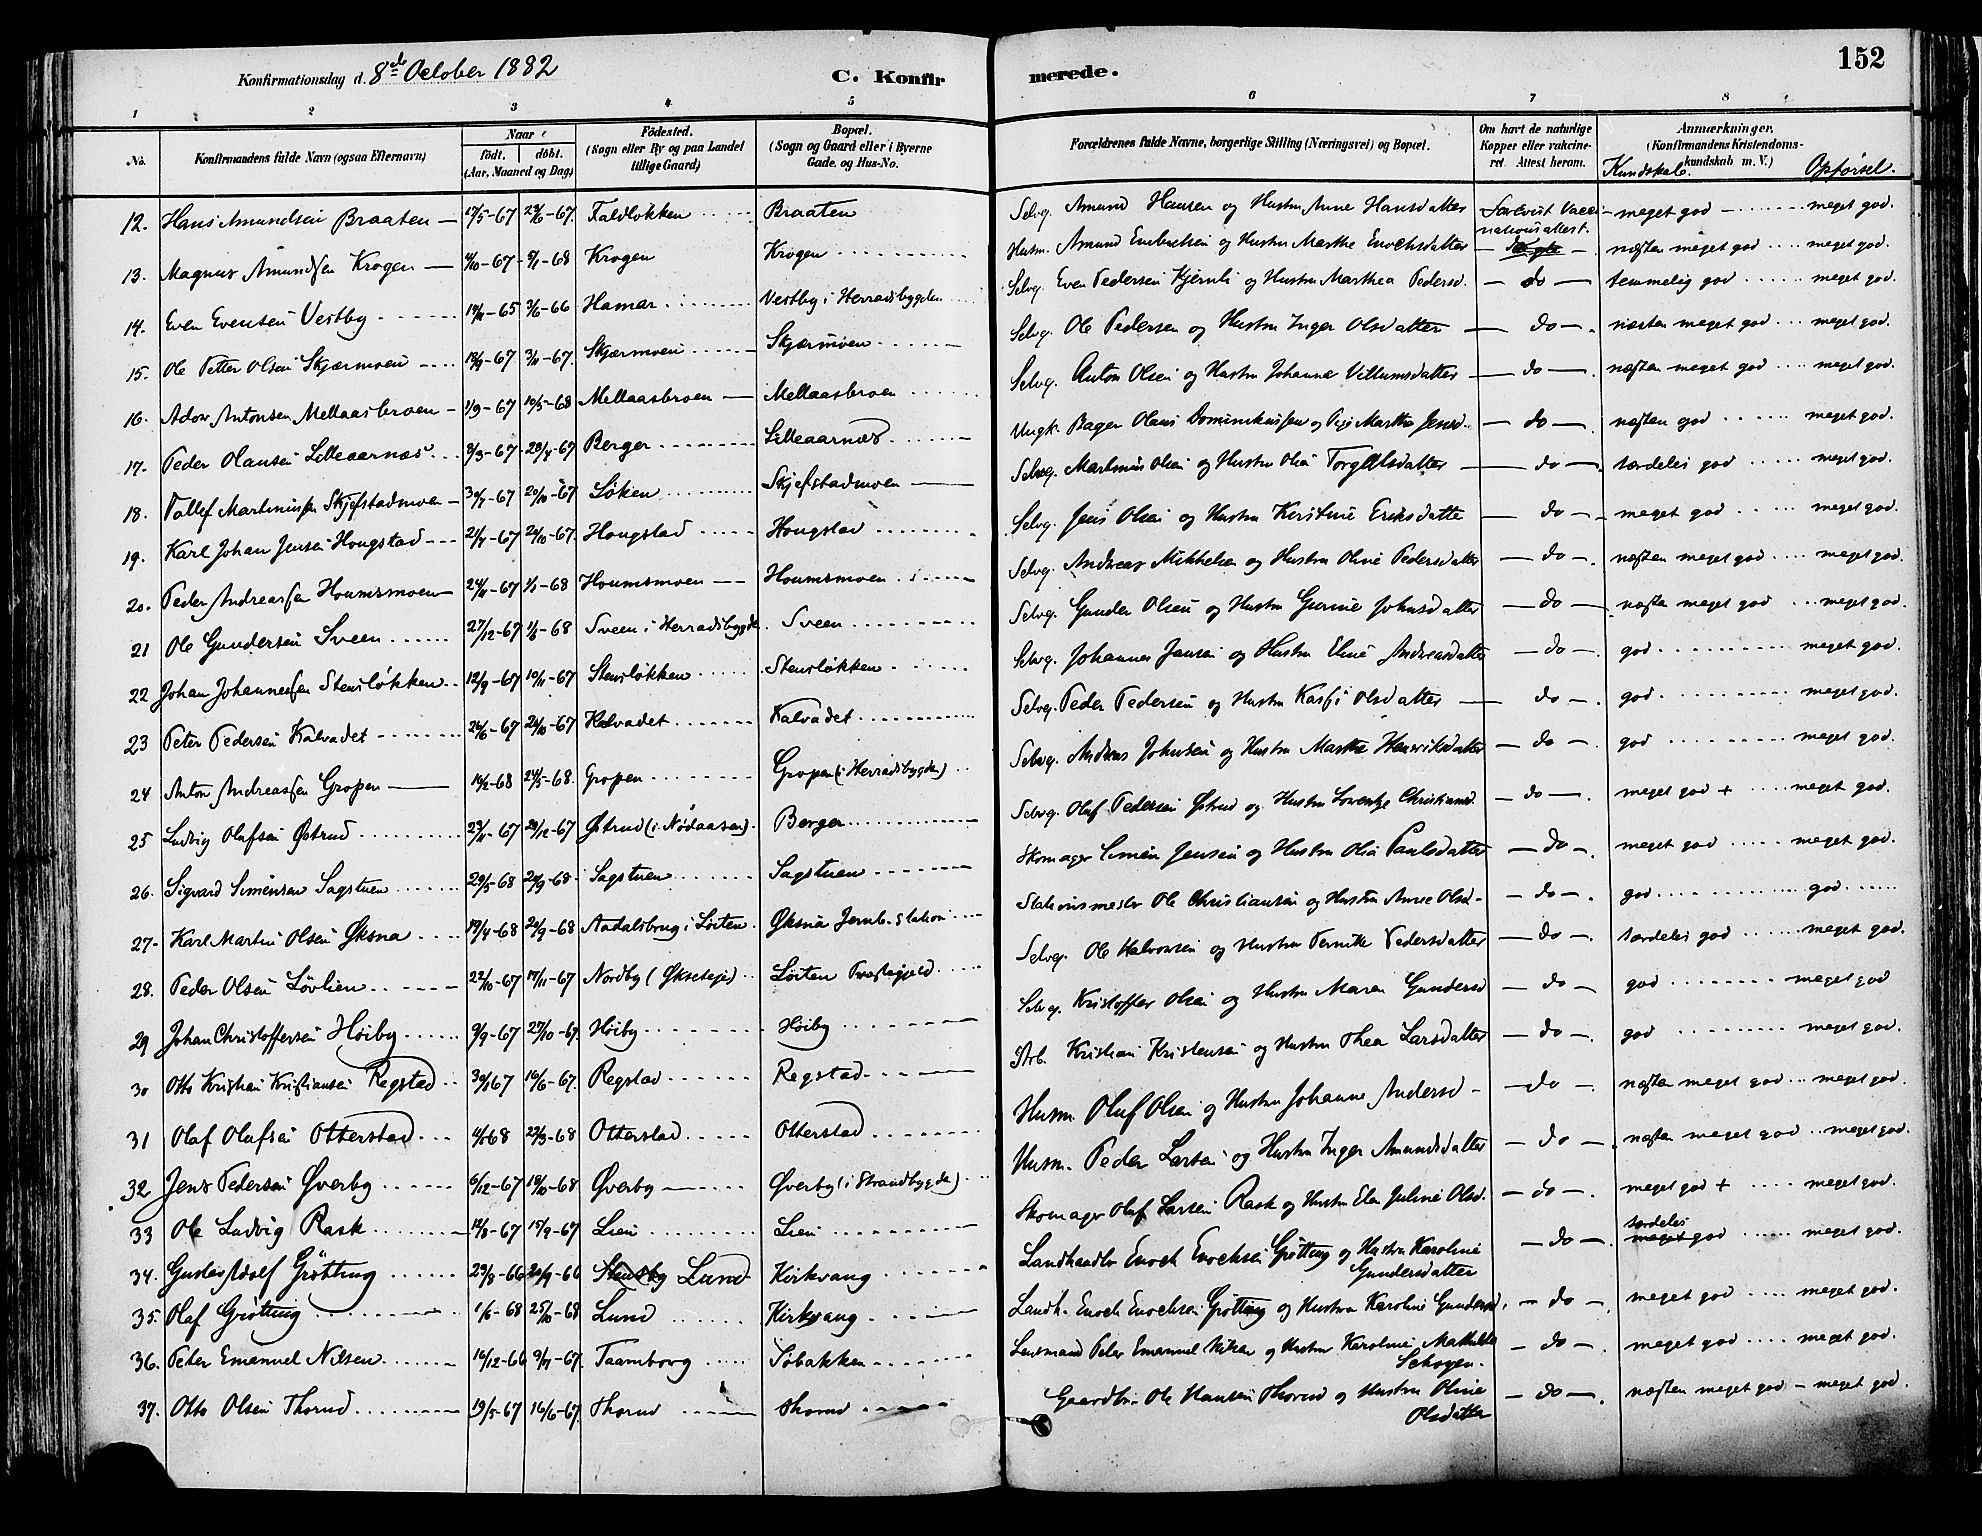 Konfirmationsdag d. 8de October 1882
C. Konfir merede.
152
1 2 3 4 5 6 7 8
No.
Konfirmandens fulde Navn (ogsaa Efternavn)
Naar
født. døbt.
(Aar, Maaned og Dag)
Fødested.
(Sogn eller By og paa Landet
tillige Gaard)
Bopæl.
(Sogn og Gaard eller i Byerne
Gade. og Hus-No.
Forældrenes fulde Navne, borgerlige Stilling (Næringsvei) og Bopæl.
Om havt de naturlige
Kopper eller vakcine-
ret. Attest herom.
Anmærkninger.
(Konfirmandens Kristendoms-
kundskab m. V.)
Kundskab. Opførsel.
12. Hans Amundsen Braaten 17/5-67 -67. Faldløkken Braaten Selvg. Amund Hansen og Hustru Anne Hansdatter Vacci- meget god meget god.
nationsattest.
13. Magnus Amundsen Krogen 4/10-67 9/1-68 Krogen Krogen Husm. Amund Embretsen og Hustru Marthe Enochsdatter næsten meget god meget god.
14. Even Evensen Vestby -65 3/6-66 Hamar Vestby i Herradsbygden Selvg. Even Pedersen Kjernli og Hustru Marthea Pedersd. do temmelig god meget god.
15. Ole Petter Olsen Skjærmoen -67 3/11-67. Skjærmoen Skjærmoen Selvg. Ole Pedersen og Hustru Inger Olsdatter do næsten meget god meget god.
16. Adov Antonsen Mellaasbroen 1/9-67 10/5-68 Mellaasbroen Mellaasbroen Selvg. Anton Olsen og Hustru Johanne Villumsdatter do næsten meget god meget god.
17. Peder Olausen Lilleaarnæs 3/3-67 20/4-67 Berger Lilleaarnæs Ungk. Bager Olaus Dominikussen og Pige Marthe Jensd. do næsten god meget god.
18. Tollef Martinussen Skjefstadmoen 30/7-67 20/10-67 Løken Skjefstadmoen Selveg. Martinus Olsen og Hustru Olia Torgalsdatter do særdeles god meget god.
19. Karl Johan Jensen Hougstad 21/7-67 20/10-67. Hougstad Hougstad Selvg. Jens Olsen og Hustru Kirstine Eriksdatter do meget god meget god.
20. Peder Andreassen Houmsmoen 24/11-67 1/1-68 Houmsmoen Houmsmoen Selvg. Andreas Mikkelsen og Hustru Oline Pedersdatter do næsten meget god meget god.
21 Ole Gundersen Sveen 27/12-67 1/6-68 Sveen i Herradsbygde Sveen Selvg. Gunder Olsen og Hustru Gurine Johnsdatter do næsten meget god meget god.
22 Johan Johannessen Stensløkken 12/9-67 10/11-67 Stensløkken Stensløkken Selvg. Johannes Jansen og Hustru Eline Andreasdatter do god meget god.
23 Peter Pedersen Kalvadet 24/6-67 20/10-67 Kalvadet Kalvadet Selvg. Peder Pedersen og Hustru Kasfi Olsdatter do god meget god.
24 Anton Andreassen Gropen 14/2-68 24/5-68. Gropen Gropen (i Herradsbygden) Selvg. Andreas Johnsen og Hustru Marthe Henriksdatter do god meget god.
25 Ludvig Olafsen Østrud 23/11-67 29/12-67 Østrud (i Nødaasen) Berger Selvg. Oluf Pedersen Østrud og Hustru Lorentze Christiansd. do meget god + meget god.
26. Sigvard Simensen Sagstuen 29/5-68 20/9-68. Sagstuen Sagstuen Skomager Simen Jensen og Hustru Olia Paulsdatter do meget god meget god.
27. Karl Martin Olsen Øksna 19/4-68 20/9-68 Aadalsbrug i Løiten Øksna Jernb-station Stationsmester Ole Christiansen og Hustru Anne Olsd. do god god
28. Peder Olsen Løvlien 22/10-67 17/11-67 Nordby (Økseteje) Løiten Præstegjeld Selvg. Ole Halvorsen og Hustru Pernille Pedersdatter do særdeles god meget god.
29 Johan Christoffersen Høiby 9/9-67 27/10-67. Høiby Høiby Selvg. Kristoffer Olsen og Hustru Maren Gundersd do god meget god
30 Otto Kristian Kristiansen Regstad 67 16/6-67. Regstad Regstad Arb. Kristian Kristensen og Hustru Thea Larsdatter do god meget god.
31 Olaf Olufsen Otterstad 68 22/3-68 Otterstad Otterstad Husm. Oluf Olsen og Hustru Johanne Andersd do næsten meget god meget god.
32 Jens Pedersen Øverby 6/12-67 -68 Øverby Øverby (i Strandbygde) Husm. Peder Larsen og Hustru Inger Amundsdatter do næsten meget god meget god.
33 Ole Ludvig Rask 12/8-67 15/9-67 Lien Lien Skomager Oluf Larsen Rask og Hustru Elen Juline Olsd. do meget god + meget god.
34. Gustav Adolf Grøtting 29/8-66 -66 Stensby Lund Kirkvang Landhandler Enoch Enochsen Grøtting og Hustru Karoline
Gundersdatter do særdeles
meget god meget god.
35. Olaf Grøtting 1/6-68 25/10-68 Lund Kirkvang Landh. Enoch Enochsen Grøtting og Hustru Karoline Gundersd. do meget god meget god.
36. Peter Emanuel Nilsen 16/12-66 9/7-67. Taamborg Søbakken Lensmand Peter Emanuel Nilsen og Hustru Karoline Mathilde
Schøyen. do meget god meget god.
37. Otto Olsen Thorud 19/5-67 16/6-67. Thorud Thorud Gaardbr. Ole Hansen Thorud og Hustru Oline
Olsdatter do næsten meget god meget god.